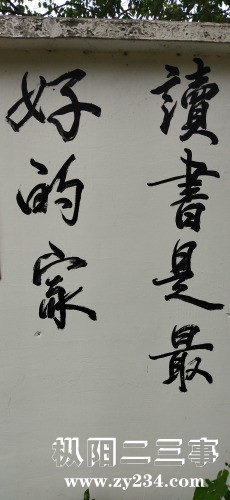 讀書是最
好的家
枞阳二三事
www.zy234.com